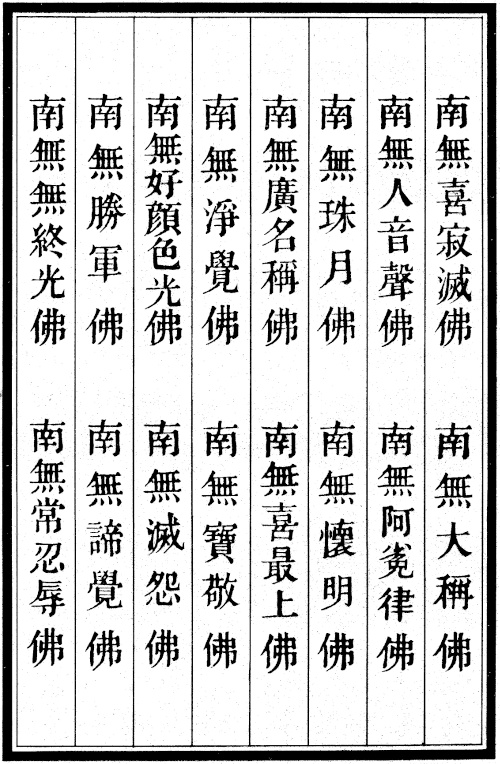 南無喜寂滅佛　南無大稱佛
南無人音聲佛　南無阿㝹律佛
南無珠月佛　南無懷明佛
南無廣名稱佛　南無喜最上佛
南無淨覺佛　南無寶敬佛
南無好顔色光佛　南無滅怨佛
南無勝軍佛　南無諦覺佛
南無無終光佛　南無常忍辱佛